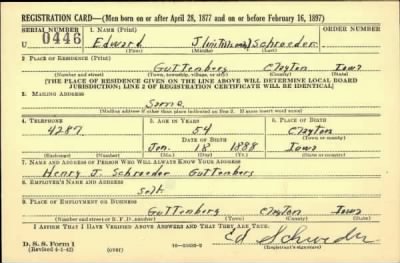 REGISTRATION CARD—(Men born on or after April 28, 1877 and on or before February 16, 1897)
SERIAL NUMBER 1. NAME (Print) ORDER NUMBER
U 0446 Edward J (initial only) Schroeder
(First) (Middle) (Last)
2. PLACE OF RESIDENCE (Print)
Guttenberg Clayton Iowa
(Number and street) (Town, township, village, or city) (County) (State)
[THE PLACE OF RESIDENCE GIVEN ON THE LINE ABOVE WILL DETERMINE LOCAL BOARD
JURISDICTION; LINE 2 OF REGISTRATION CERTIFICATE WILL BE IDENTICAL]
3. MAILING ADDRESS
Same
[Mailing address if other than place indicated on line 2. If same insert word same]
4. TELEPHONE 5. AGE IN YEARS 6. PLACE OF BIRTH
4287 54 Clayton
DATE OF BIRTH (Town or county)
Jan. 18 1888 Iowa
(Exchange) (Number) (Mo.) (Day) (Yr.) (State or country)
7. NAME AND ADDRESS OF PERSON WHO WILL ALWAYS KNOW YOUR ADDRESS
Henry J. Schroeder Guttenberg
8. EMPLOYER'S NAME AND ADDRESS
Self
9. PLACE OF EMPLOYMENT OR BUSINESS
Guttenberg Clayton Iowa
(Number and street or R. F. D. number) (Town) (County) (State)
I AFFIRM THAT I HAVE VERIFIED ABOVE ANSWERS AND THAT THEY ARE TRUE.
D. S. S. Form 1 Ed Schroeder
(Revised 4-1-42) (over) (Registrant's signature)